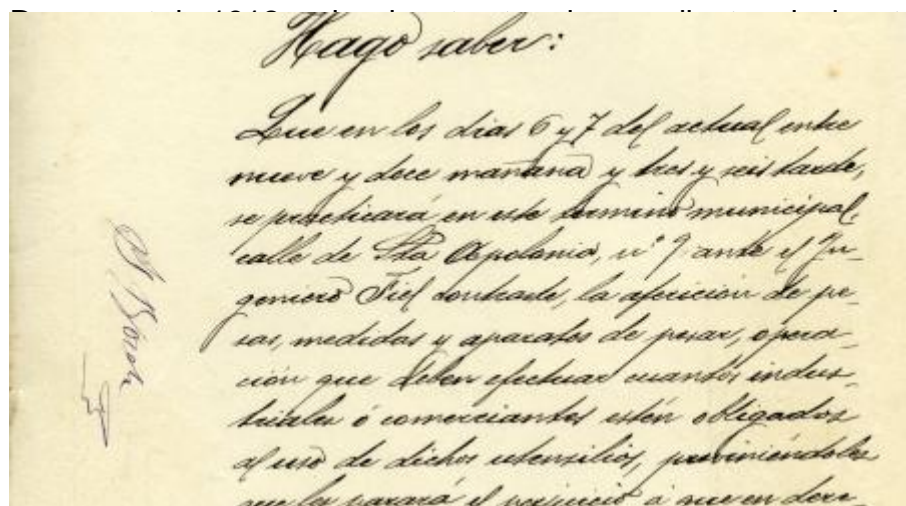 Hago saber:
Que en los dias 6 y 7 del actual entre
nueve y doce mañana y tres y seis tarde,
se practicará en este termino municipal,
calle de Sta Apolonia, nº 9 ante el In-
geniero Fiel contraste, la aferición de pe-
sas, medidas y aparatos de pesar, opera-
ción que deben efectuar cuantos indus-
triales ó comerciantes estén obligados
al uso de dichos utensilios, previniéndoles
que les parará el perjuicio á que en dere-